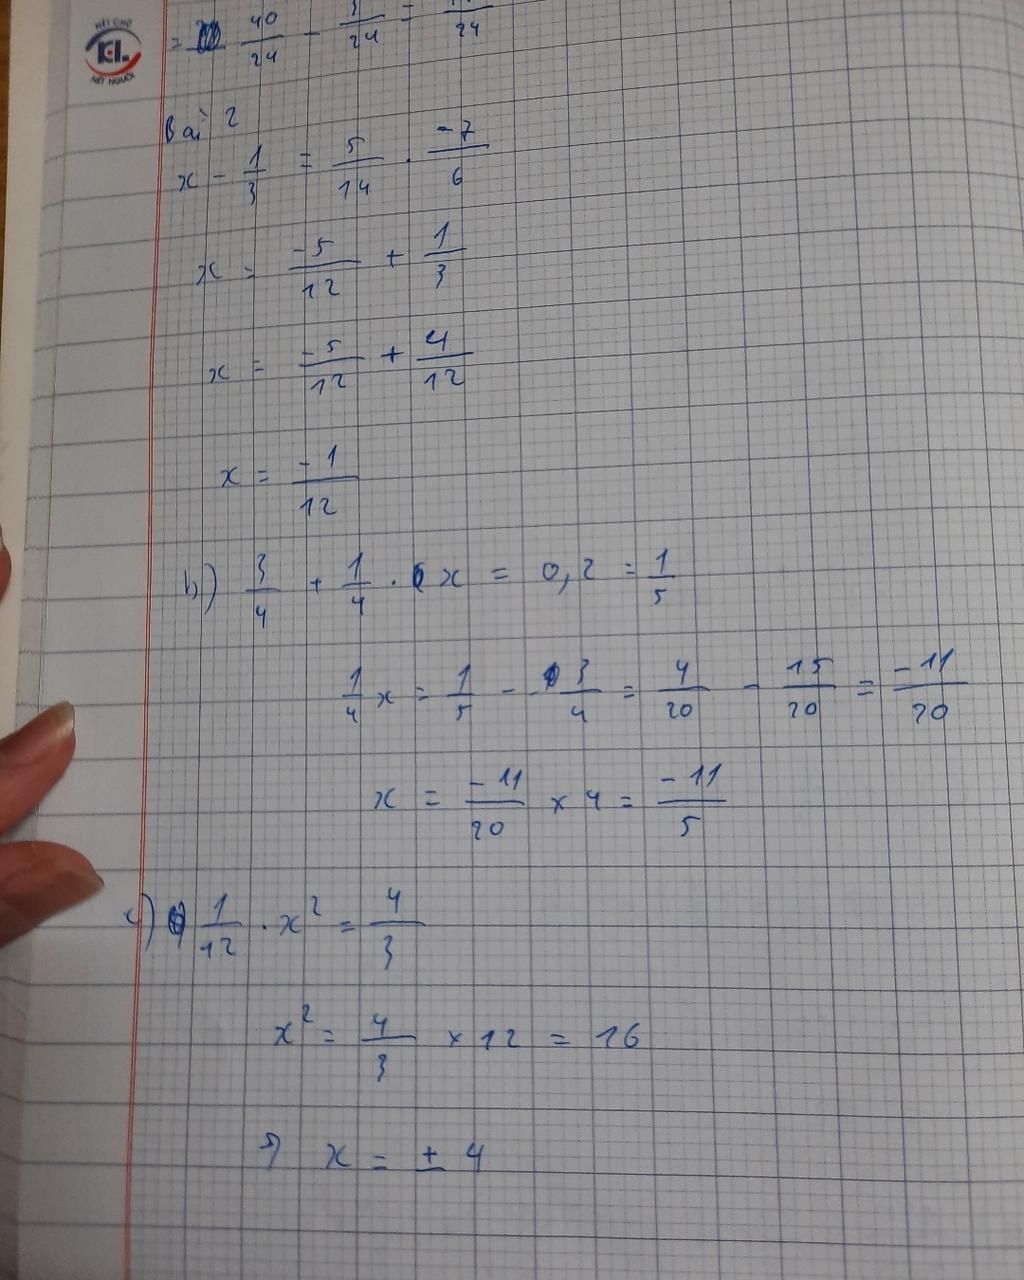 NÉT CHỮ
K.L.
NẾT NGƯỜI
= 40/24 - 3/24 = /24
Bài 2
x - 1/3 = 5/14 . -7/6
x = -5/12 + 1/3
x = -5/12 + 4/12
x = -1/12
b) 3/4 + 1/4 . x = 0,2 = 1/5
1/4 x = 1/5 - 3/4 = 4/20 - 15/20 = -11/20
x = -11/20 × 4 = -11/5
c) 1/12 . x² = 4/3
x² = 4/3 × 12 = 16
⇒ x = ± 4